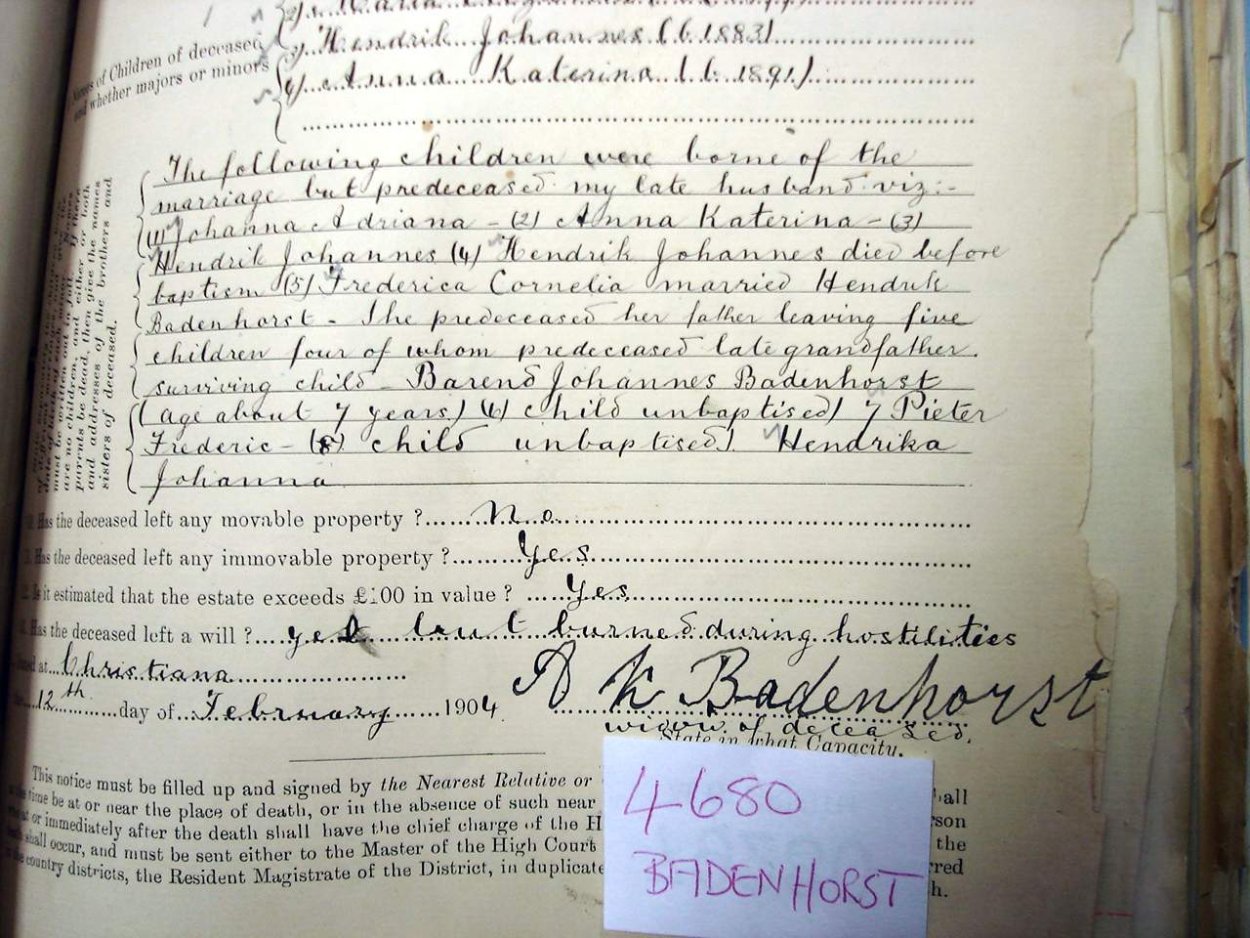 3) Hendrik Johannes (b 1883)
Names of Children of deceased
and whether majors or minors
4) Anna Katerina (b. 1891)
The following children were borne of the
marriage but predeceased my late husband viz:-
(1) Johanna Adriana - (2) Anna Katerina - (3)
Hendrik Johannes (4) Hendrik Johannes died before
baptism (5) Frederica Cornelia married Hendrik
Badenhorst - She predeceased her father leaving five
children four of whom predeceased late grandfather.
surviving child - Barend Johannes Badenhorst
(age about 7 years) (6) child unbaptised) 7 Pieter
Frederic - (8) child unbaptised). Hendrika
Johanna
must be written out in full. If there
are no children, and either or both
parents be dead, then give the names
and addresses of the brothers and
sisters of deceased.
Has the deceased left any movable property ? No
Has the deceased left any immovable property ? Yes
Is it estimated that the estate exceeds £100 in value ? Yes
Has the deceased left a will ? yes but burned during hostilities
at Christiana
12th day of February 1904
A K Badenhorst
widow of deceased.
State in what Capacity.
This notice must be filled up and signed by the Nearest Relative or
time be at or near the place of death, or in the absence of such near
or immediately after the death shall have the chief charge of the H
shall occur, and must be sent either to the Master of the High Court the
country districts, the Resident Magistrate of the District, in duplicate
4680
BADENHORST